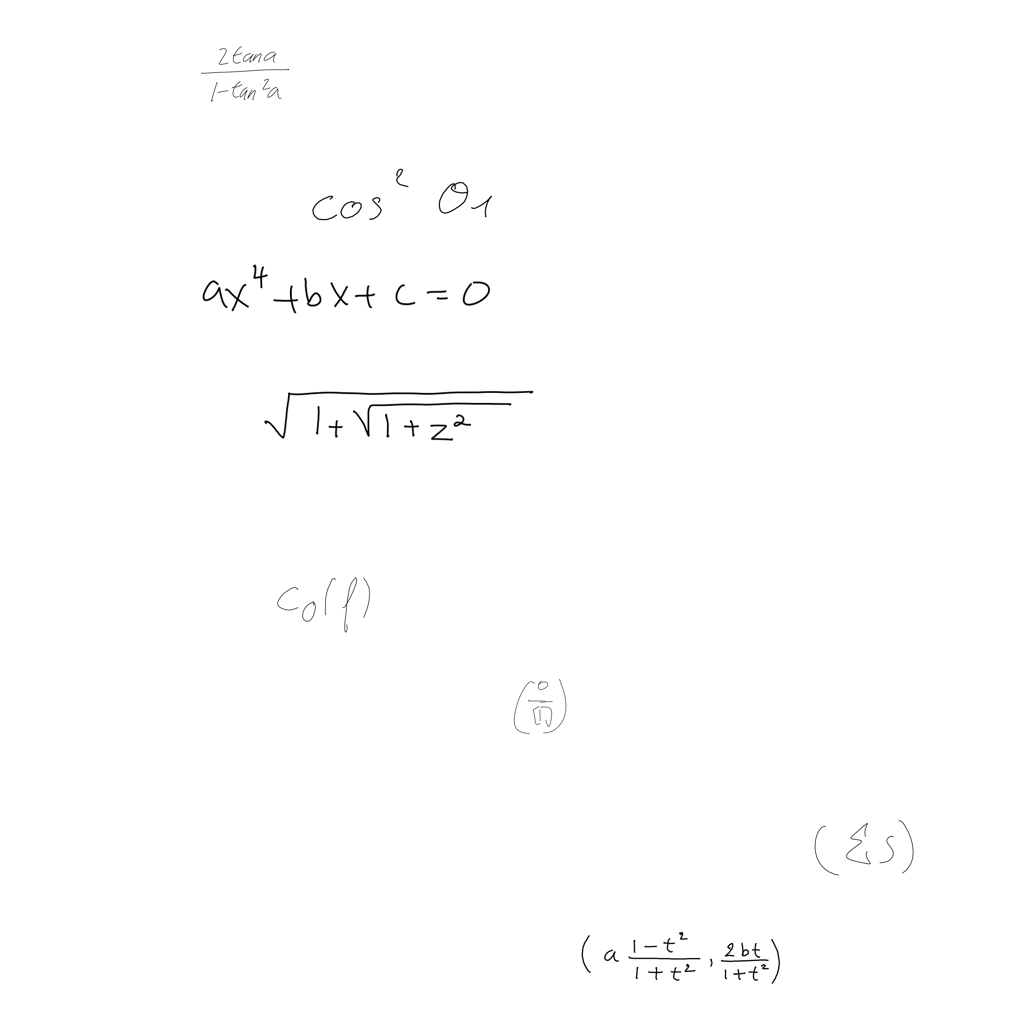 \frac{2\tan a}{1-\tan^2 a}
\cos^2 \theta_1
ax^4+bx+c=0
\sqrt{1+\sqrt{1+z^2}}
c_0(f)
(\Sigma s)
\left(a\frac{1-t^2}{1+t^2},\frac{2bt}{1+t^2}\right)